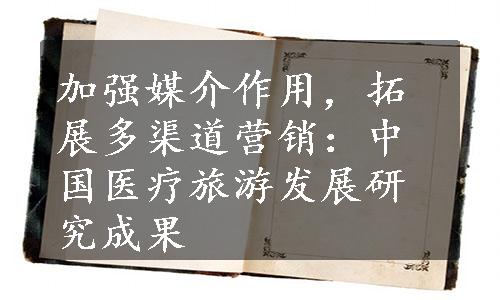 加强媒介作用，拓
展多渠道营销：中
国医疗旅游发展研
究成果